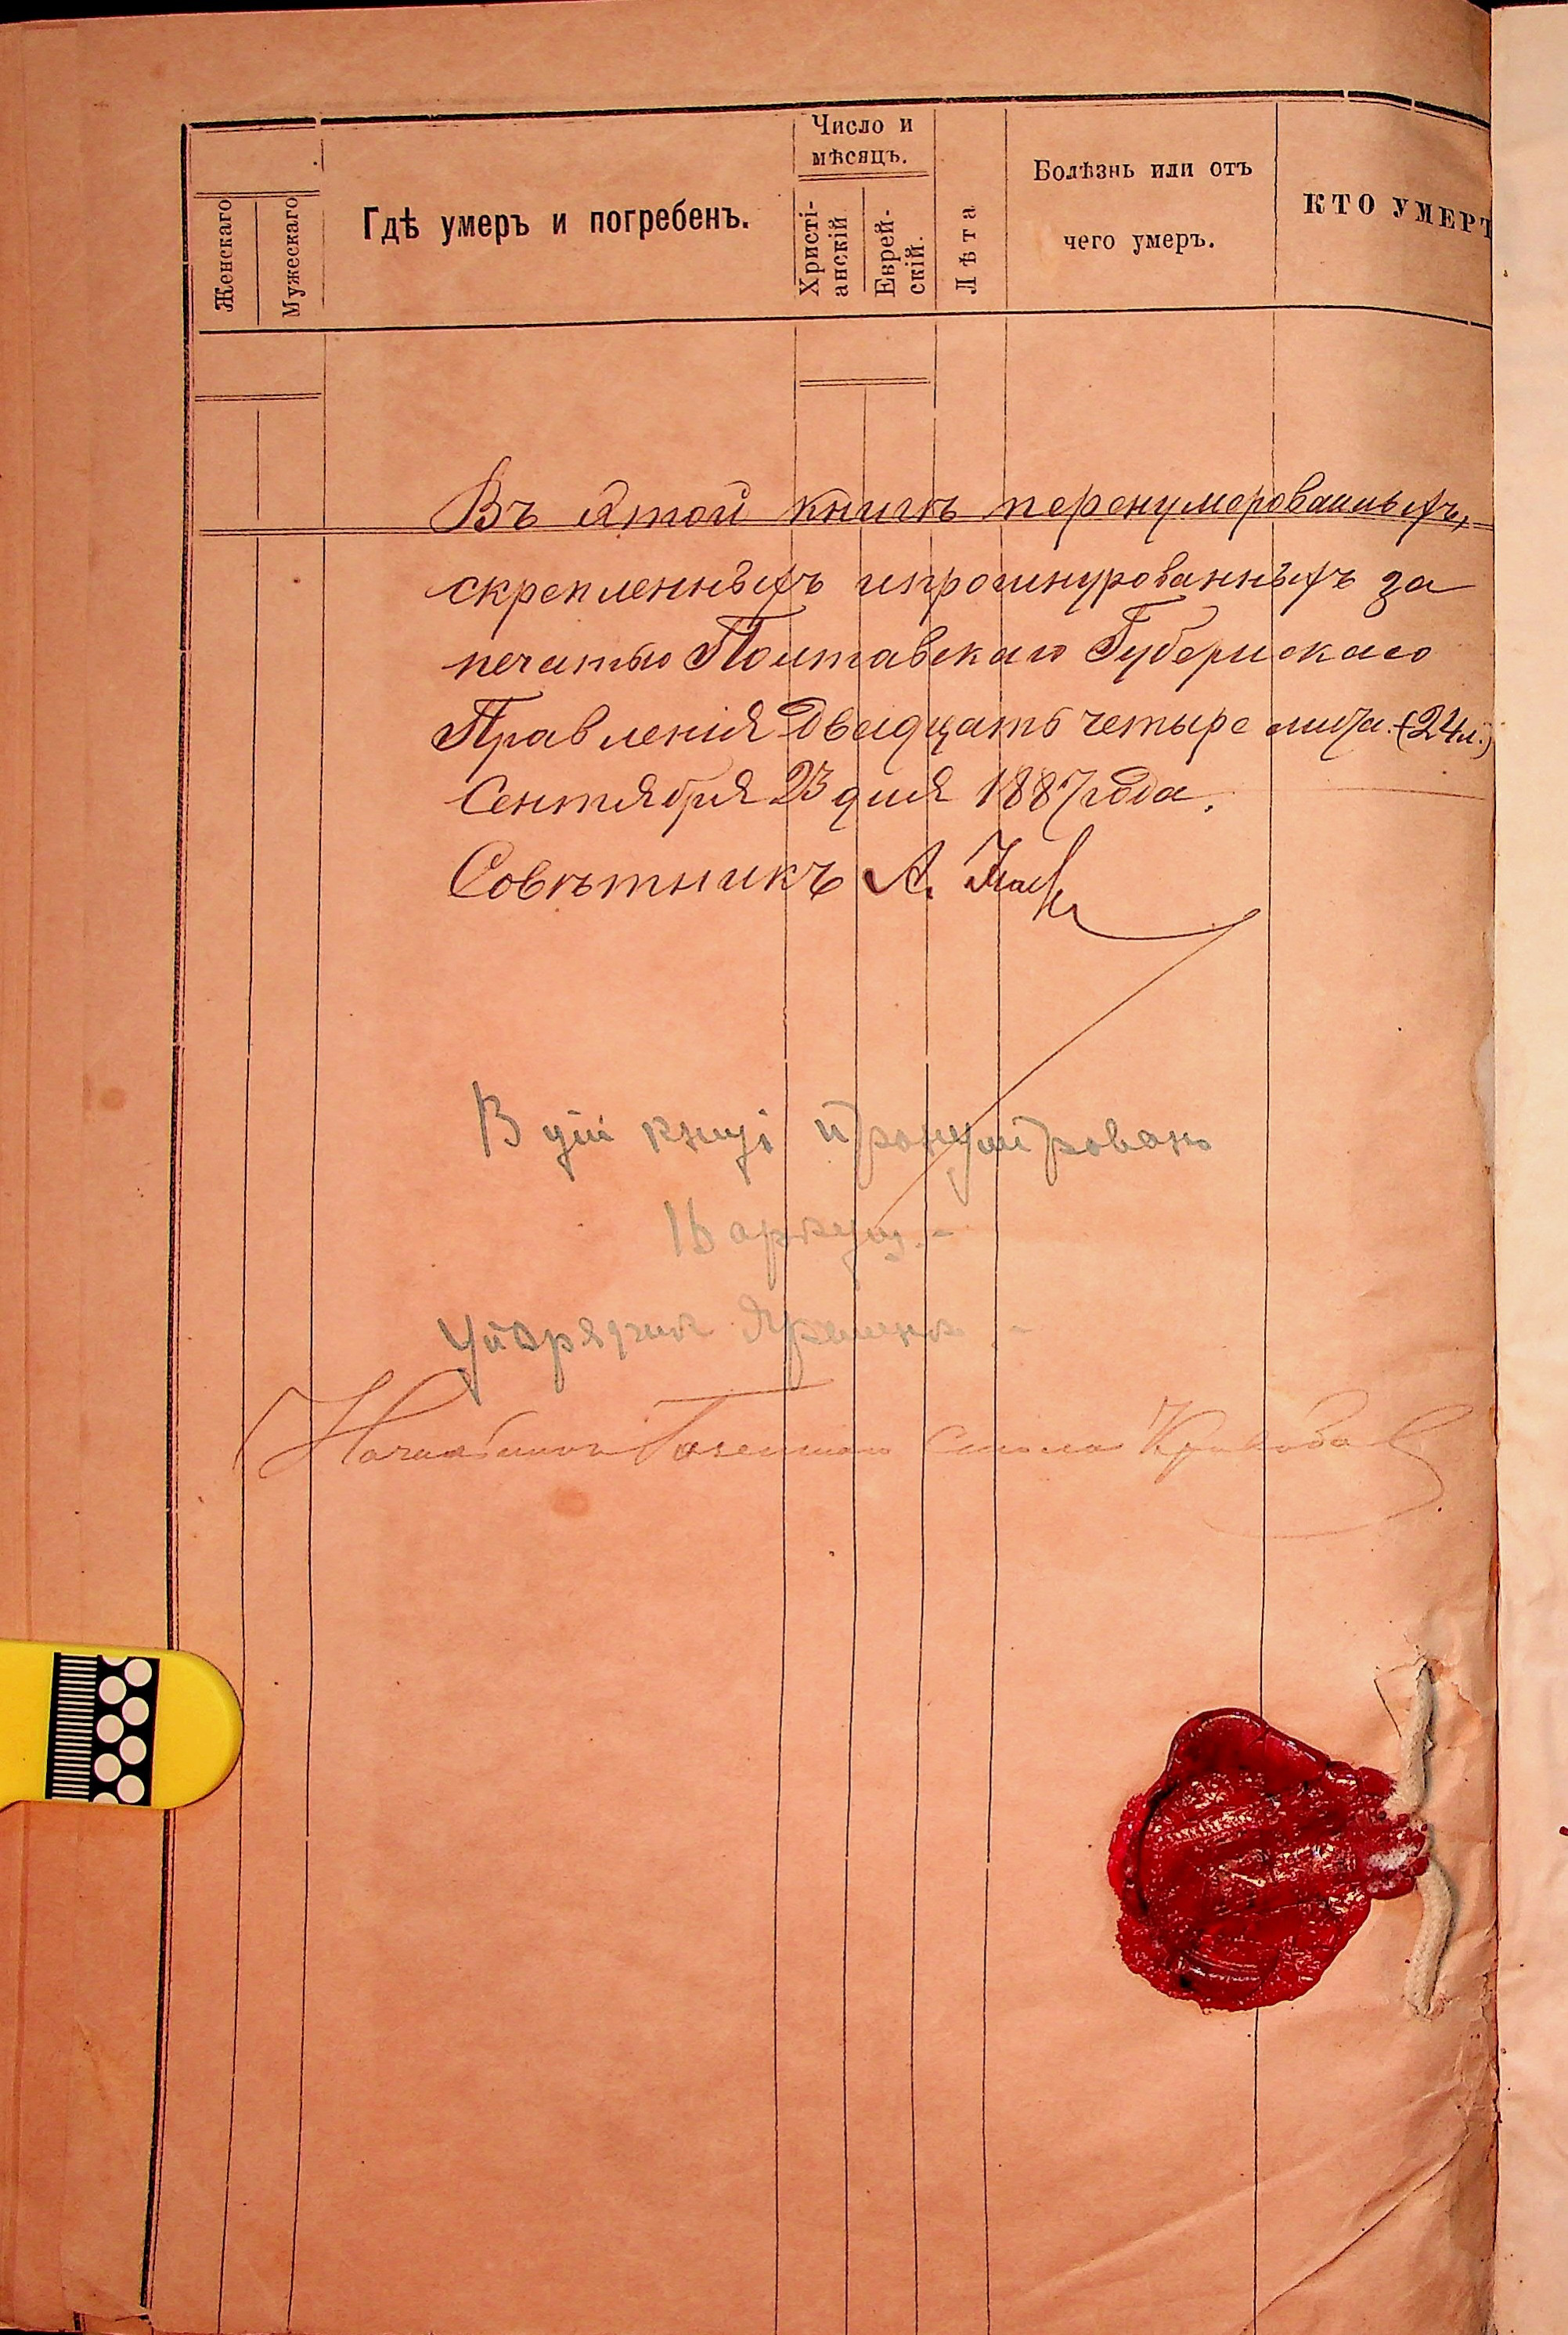 Женскаго
Мужескаго
Гдѣ умеръ и погребенъ.
Число и
мѣсяцъ.
Христі-
анскій
Еврей-
скій.
Лѣта
Болѣзнь или отъ
чего умеръ.
КТО УМЕРЪ
Въ этой книгѣ перенумерованныхъ,
скрепленныхъ ипрошнурованныхъ за
печатью Полтавскаго Губернскаго
Правленія двадцать четыре листа. (24 л.)
Сентября 23 дня 1887 года.
Совѣтникъ А.
В цій книзі пронумеровано
аркуш.-
Упорядчик
Начальникъ Газетнаго Стола